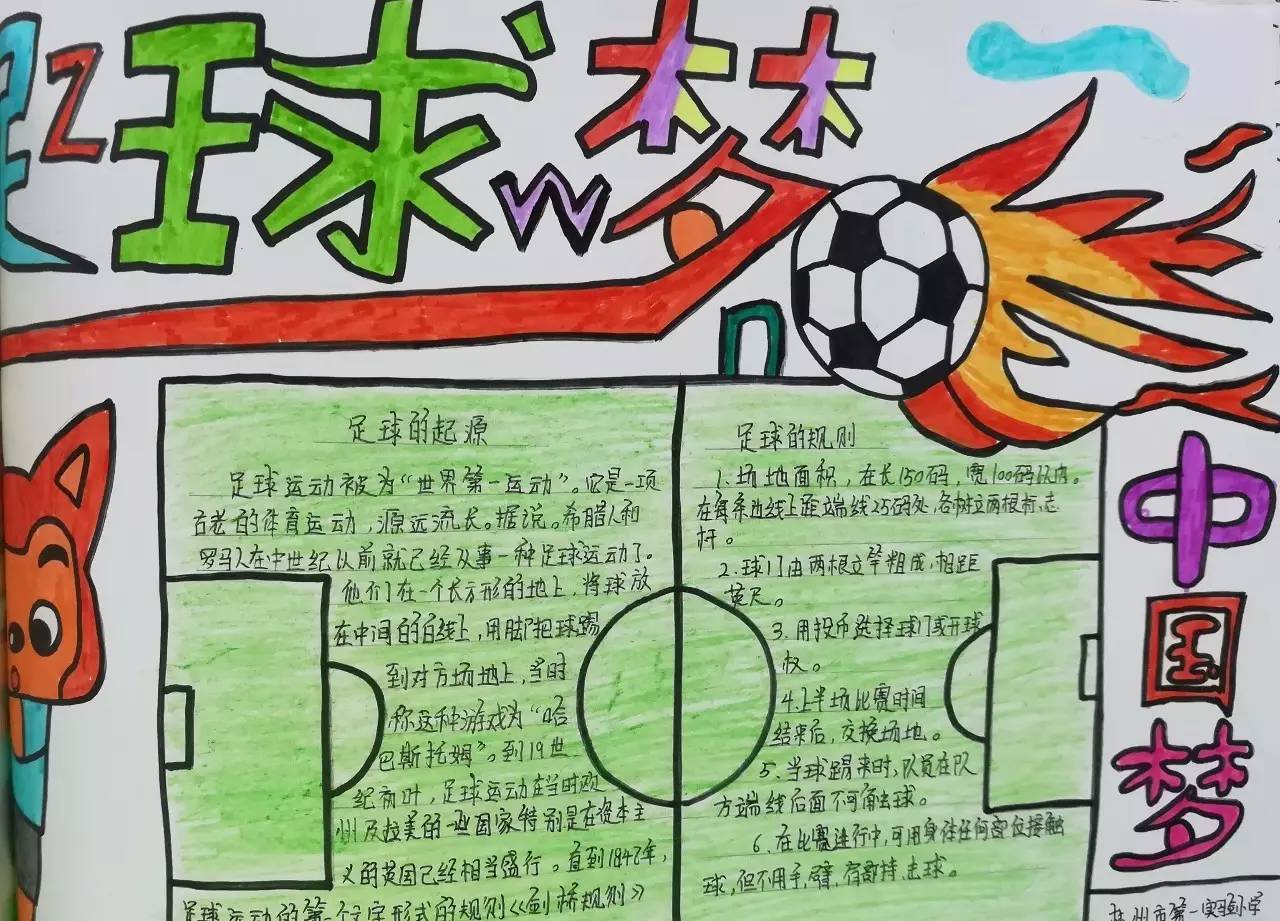 足球梦
中国梦
足球的起源
足球运动被为“世界第一运动”。它是一项
古老的体育运动,源远流长。据说。希腊人和
罗马人在中世纪以前就已经从事一种足球运动了。
他们在一个长方形的地上,将球放
在中间的白线上,用脚把球踢
到对方场地上,当时
称这种游戏为“哈
巴斯托姆”。到19世
纪初叶,足球运动在当时欧
州及拉美的一些国家特别是在资本主
义的英国已经相当盛行。直到1848年,
足球运动的第一个文字形式的规则《剑桥规则》
足球的规则
1.场地面积,在长150码,宽100码以内。
在每条边线上距端线25码处,各树立两根标志
杆。
2.球门由两根立竿组成,相距
英尺。
3.用投币选择球门或开球
权。
4.上半场比赛时间
结束后,交换场地。
5.当球踢来时,队员在队
方端线后面不可角去球。
6.在比赛进行中,可用身体任何部位接触
球,但不用手,臂,肩部持、击球。
州市第一实验小学